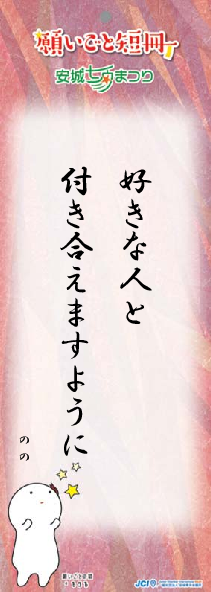 願いごと短冊
安城七夕まつり
好きな人と
付き合えますように
のの
JCI